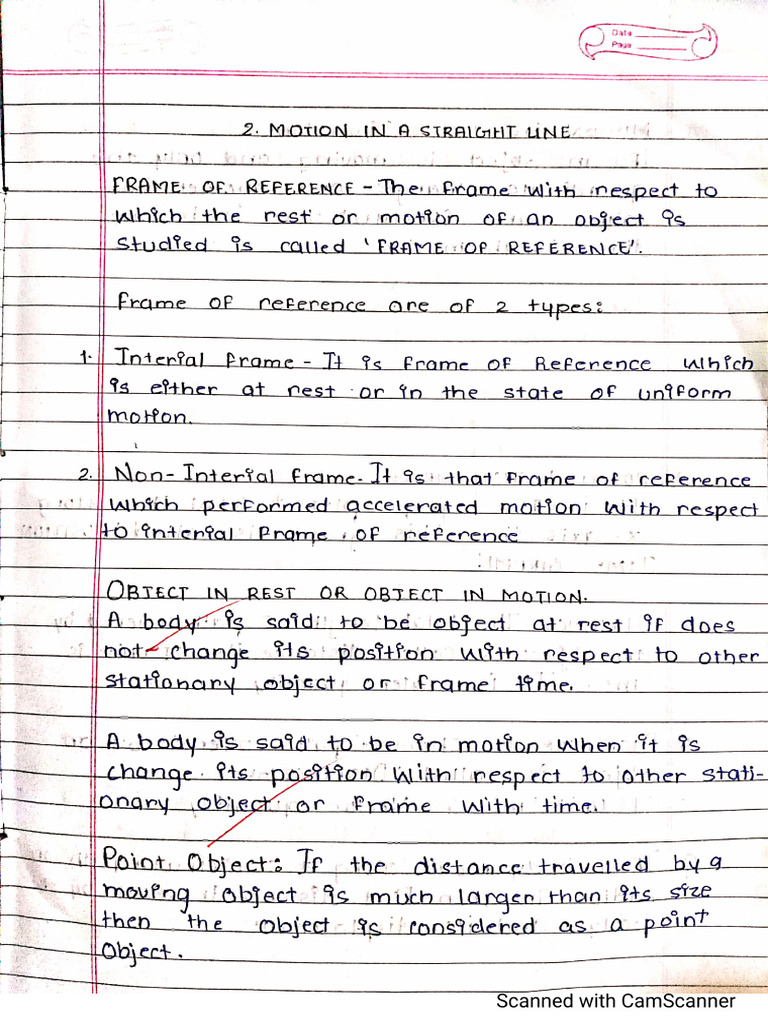 Date
Page
2. MOTION IN A STRAIGHT LINE
FRAME OF REFERENCE - The frame with respect to
which the rest or motion of an object is
studied is called 'FRAME OF REFERENCE'.
Frame of reference are of 2 types:
1. Interial frame - It is frame of Reference which
is either at rest or in the state of uniform
motion.
2. Non-Interial frame. It is that frame of reference
which performed accelerated motion with respect
to interial frame of reference
OBJECT IN REST OR OBJECT IN MOTION.
A body is said to be object at rest if does
not change its position with respect to other
stationary object or frame time.
A body is said to be in motion when it is
change its position with respect to other stati-
onary object or frame with time.
Point Object: If the distance travelled by a
moving object is much larger than its size
then the object is considered as a point
Object.
Scanned with CamScanner